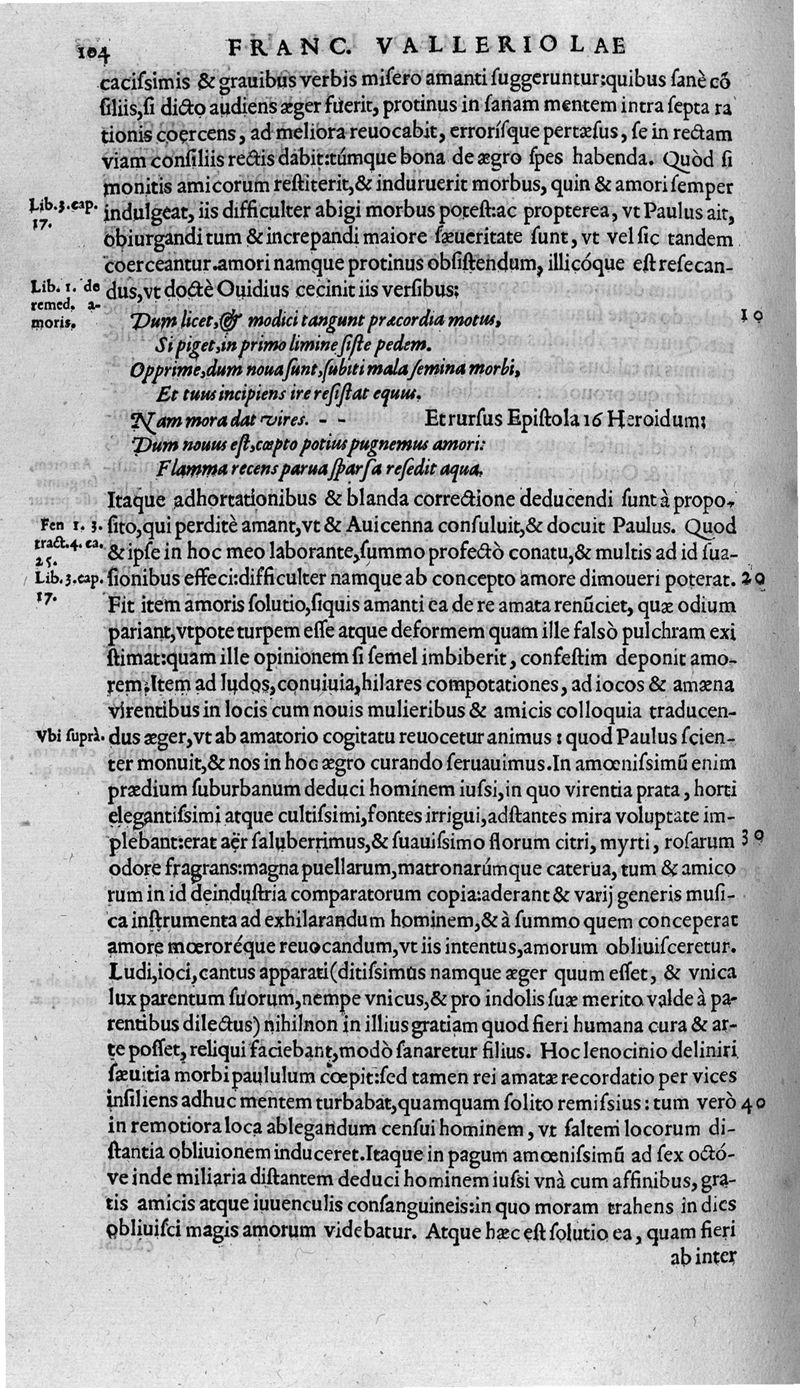 104 FRANC. VALLERIOLAE
caciſsimis & grauibus verbis miſero amanti ſuggeruntur:quibus ſanè cõ
ſiliis,ſi dicto audiens æger fuerit, protinus in ſanam mentem intra ſepta ra
tionis coercens, ad meliora reuocabit, erroríſque pertæſus, ſe in rectam
viam conſiliis rectis dabit:túmque bona de ægro ſpes habenda. Quòd ſi
monitis amicorum reſtiterit,& induruerit morbus, quin & amori ſemper
Lib.3.cap.
17.
indulgeat, iis difficulter abigi morbus poteſt:ac propterea, vt Paulus ait,
obiurgandi tum & increpandi maiore ſæueritate ſunt, vt vel ſic tandem
coerceantur.amori namque protinus obſiſtendum, illicóque eſt reſecan-
Lib. 1. de
remed. a-
moris.
dus,vt doctè Ouidius cecinit iis verſibus;
Dum licet,& modici tangunt præcordia motus, 10
Si piget,in primo limine ſiſte pedem.
Opprime,dum noua ſunt,ſubiti mala ſemina morbi,
Et tuus incipiens ire reſiſtat equus.
Nam mora dat vires. - - Et rurſus Epiſtola 16 Heroidum;
Dum nouus eſt,cœpto potius pugnemus amori:
Flamma recens parua ſparſa reſedit aqua.
Itaque adhortationibus & blanda correctione deducendi ſunt à propo-
Fen 1. 3.
tract.4.ca.
25.
ſito,qui perditè amant,vt & Auicenna conſuluit,& docuit Paulus. Quod
& ipſe in hoc meo laborante,ſummo profectò conatu,& multis ad id ſua-
Lib.3.cap.
17.
ſionibus effeci:difficulter namque ab concepto amore dimoueri poterat. 20
Fit item amoris ſolutio,ſiquis amanti ea de re amata renũciet, quæ odium
pariant,vtpote turpem eſſe atque deformem quam ille falsò pulchram exi
ſtimat:quam ille opinionem ſi ſemel imbiberit, confeſtim deponit amo-
rem.Item ad ludos,conuiuia,hilares compotationes, ad iocos & amæna
virentibus in locis cum nouis mulieribus & amicis colloquia traducen-
Vbi ſuprà.
dus æger,vt ab amatorio cogitatu reuocetur animus : quod Paulus ſcien-
ter monuit,& nos in hoc ægro curando ſeruauimus.In amœniſsimũ enim
prædium ſuburbanum deduci hominem iuſsi,in quo virentia prata, horti
elegantiſsimi atque cultiſsimi,fontes irrigui,adſtantes mira voluptate im-
plebant:erat aër ſaluberrimus,& ſuauiſsimo florum citri, myrti, roſarum 30
odore fragrans:magna puellarum,matronarúmque caterua, tum & amico
rum in id deinduſtria comparatorum copia:aderant & varij generis muſi-
ca inſtrumenta ad exhilarandum hominem,& à ſummo quem conceperat
amore mœroréque reuocandum,vt iis intentus,amorum obliuiſceretur.
Ludi,ioci,cantus apparati(ditiſsimus namque æger quum eſſet, & vnica
lux parentum ſuorum,nempe vnicus,& pro indolis ſuæ merito valde à pa-
rentibus dilectus) nihilnon in illius gratiam quod fieri humana cura & ar-
te poſſet, reliqui faciebant,modò ſanaretur filius. Hoc lenocinio deliniri
ſæuitia morbi paululum cœpit:ſed tamen rei amatæ recordatio per vices
inſiliens adhuc mentem turbabat,quamquam ſolito remiſsius : tum verò 40
in remotiora loca ablegandum cenſui hominem, vt ſaltem locorum di-
ſtantia obliuionem induceret.Itaque in pagum amœniſsimũ ad ſex octó-
ve inde miliaria diſtantem deduci hominem iuſsi vnà cum affinibus, gra-
tis amicis atque iuuenculis conſanguineis:in quo moram trahens in dies
obliuiſci magis amorum videbatur. Atque hæc eſt ſolutio ea, quam fieri
ab inter